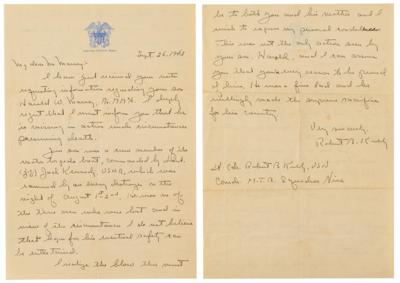 Sept. 26, 1943
My dear Mr. Marney:
I have just received your note
requesting information regarding your son
Harold W. Marney, I deeply
regret that I must inform you that he
is missing in action under circumstances
presuming death.
Your son was a crew member of the
motor torpedo boat, commanded by Lieut.
(jg) Jack Kennedy USNR, which was
rammed by an enemy destroyer on the
night of August 1st-2nd. He was one of
the three men who were lost and in
view of the circumstances I do not believe
that hope for his eventual safety can
be entertained.
I realize the blow this must
be to both you and his mother and I
wish to express my personal condolence
This was not the only action seen by
your son, Harold, and I can assure
you that you have every reason to be proud of
him. He was a fine lad and he
willingly made the supreme sacrifice
for his country
Very sincerely,
Robert B. Kelly
Lt. Cdr. Robert B. Kelly, USN
Comdr. M.T.B. Squadron Nine